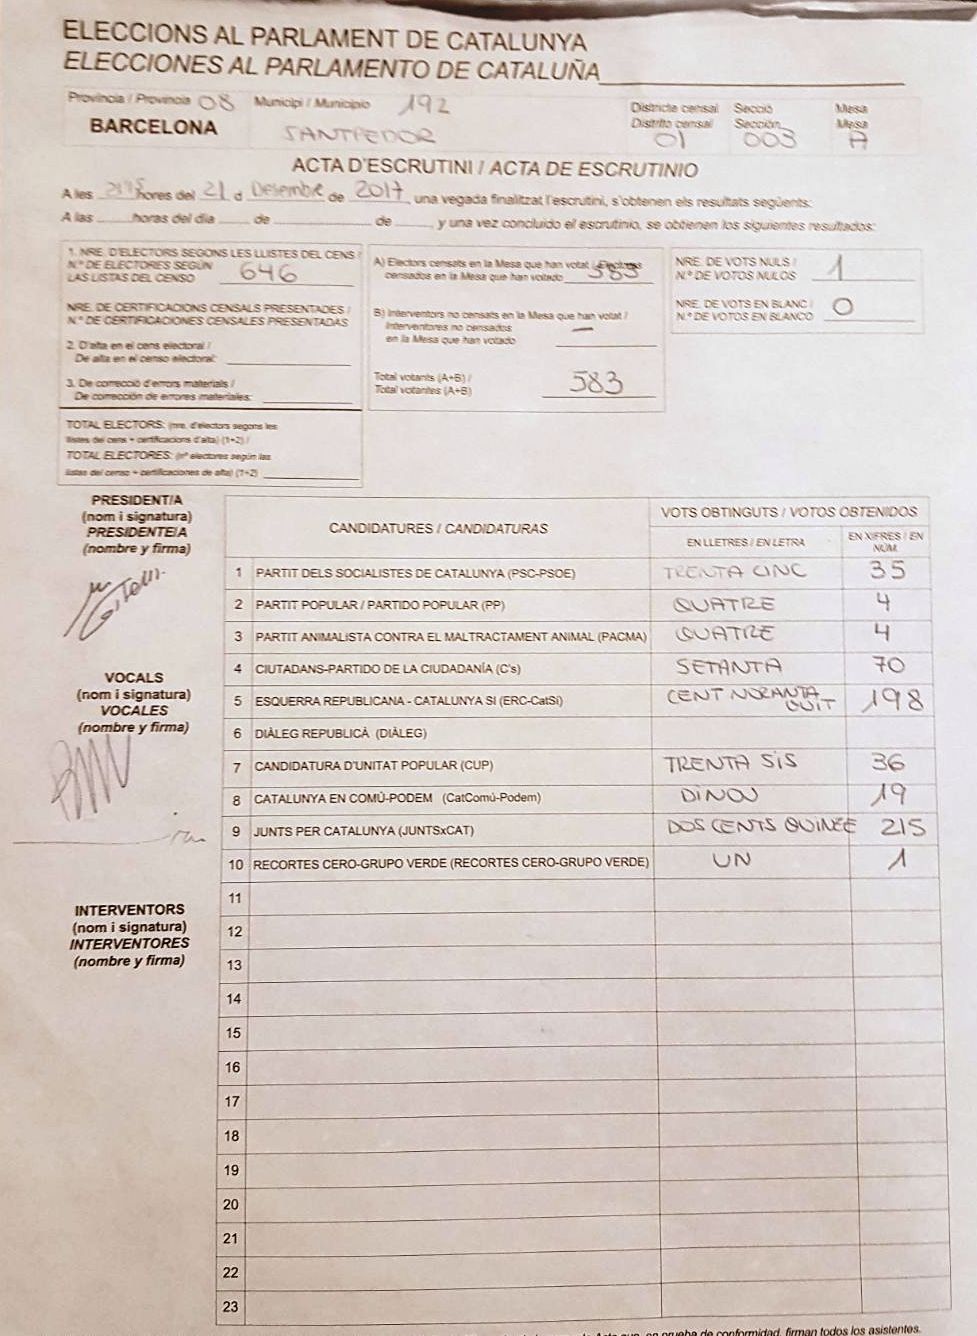 ELECCIONS AL PARLAMENT DE CATALUNYA
ELECCIONES AL PARLAMENTO DE CATALUÑA
Província / Provincia 08 Municipi / Municipio 192
BARCELONA SANTPEDOR
Districte censal Secció Mesa
Distrito censal Sección Mesa
01 003 A
ACTA D'ESCRUTINI / ACTA DE ESCRUTINIO
A les hores del 21 d Desembre de 2017, una vegada finalitzat l'escrutini, s'obtenen els resultats següents:
A las horas del día de de , y una vez concluido el escrutinio, se obtienen los siguientes resultados:
1. NRE. D'ELECTORS SEGONS LES LLISTES DEL CENS /
N.º DE ELECTORES SEGÚN
LAS LISTAS DEL CENSO 646
NRE. DE CERTIFICACIONS CENSALS PRESENTADES /
N.º DE CERTIFICACIONES CENSALES PRESENTADAS
2. D'alta en el cens electoral /
De alta en el censo electoral:
3. De correcció d'errors materials /
De corrección de errores materiales:
TOTAL ELECTORS: (nre. d'electors segons les
llistes del cens + certificacions d'alta) (1+2) /
TOTAL ELECTORES: (nº electores según las
listas del censo + certificaciones de alta) (1+2)
A) Electors censats en la Mesa que han votat / Electores
censados en la Mesa que han votado 583
B) Interventors no censats en la Mesa que han votat /
Interventores no censados
en la Mesa que han votado —
Total votants (A+B) /
Total votantes (A+B) 583
NRE. DE VOTS NULS /
N.º DE VOTOS NULOS 1
NRE. DE VOTS EN BLANC /
N.º DE VOTOS EN BLANCO 0
PRESIDENT/A
(nom i signatura)
PRESIDENTE/A
(nombre y firma)
VOCALS
(nom i signatura)
VOCALES
(nombre y firma)
INTERVENTORS
(nom i signatura)
INTERVENTORES
(nombre y firma)
CANDIDATURES / CANDIDATURAS
VOTS OBTINGUTS / VOTOS OBTENIDOS
EN LLETRES / EN LETRA
EN XIFRES / EN
NÚM.
1 PARTIT DELS SOCIALISTES DE CATALUNYA (PSC-PSOE) TRENTA CINC 35
2 PARTIT POPULAR / PARTIDO POPULAR (PP) QUATRE 4
3 PARTIT ANIMALISTA CONTRA EL MALTRACTAMENT ANIMAL (PACMA) QUATRE 4
4 CIUTADANS-PARTIDO DE LA CIUDADANÍA (C's) SETANTA 70
5 ESQUERRA REPUBLICANA - CATALUNYA SI (ERC-CatSí) CENT NORANTA VUIT 198
6 DIÀLEG REPUBLICÀ (DIÀLEG)
7 CANDIDATURA D'UNITAT POPULAR (CUP) TRENTA SIS 36
8 CATALUNYA EN COMÚ-PODEM (CatComú-Podem) DINOU 19
9 JUNTS PER CATALUNYA (JUNTSxCAT) DOS CENTS QUINZE 215
10 RECORTES CERO-GRUPO VERDE (RECORTES CERO-GRUPO VERDE) UN 1
11
12
13
14
15
16
17
18
19
20
21
22
23
en prueba de conformidad, firman todos los asistentes.